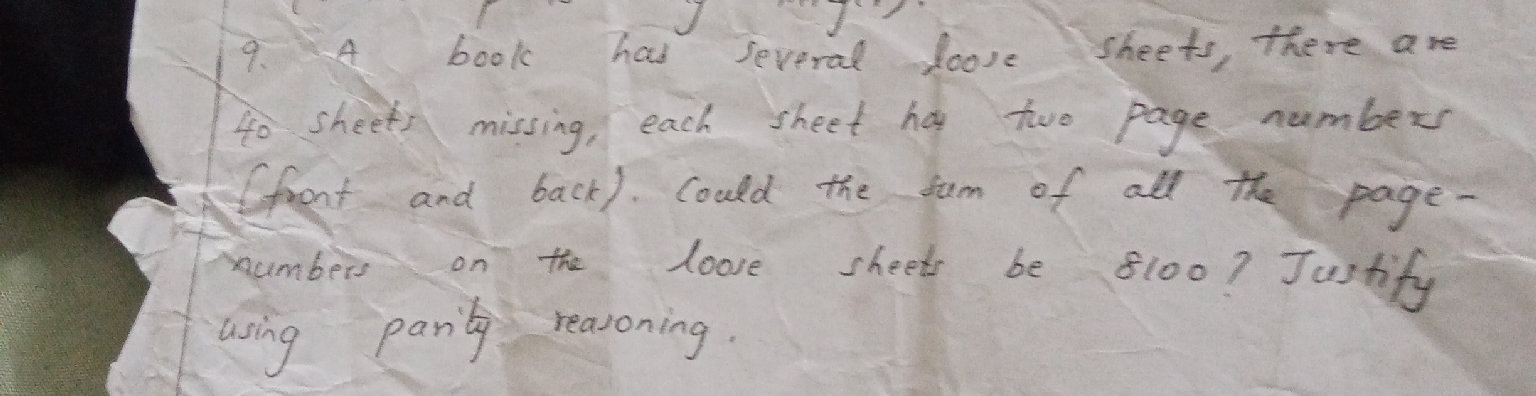 9. A book has several loose sheets, there are
40 sheets missing, each sheet has two page numbers
(front and back). Could the sum of all the page-
numbers on the loose sheets be 8100? Justify
using parity reasoning.